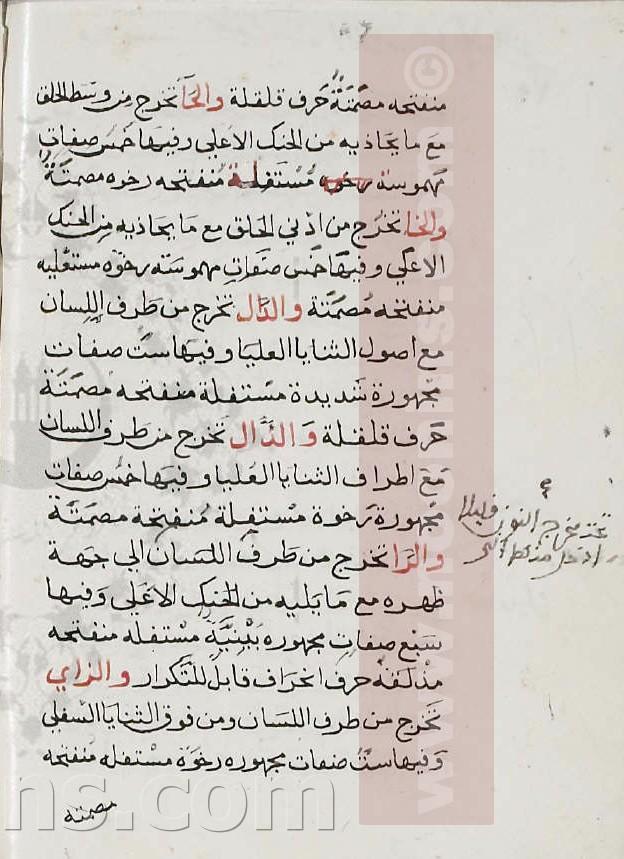 منفتحه مصمتة حرف قلقلة والحا تخرج من وسط الحلق
مع ما يحاذيه من الحنك الاعلي وفيها خمس صفات
مهموسة رخوه مستفلة منفتحه رخوه مصمتة
والخا تخرج من ادني الحلق مع ما يحاذيه من الحنك
الاعلي وفيها خمس صفات مهموسته رخوه مستعليه
منفتحه مصمتة والدال تخرج من طرف اللسان
مع اصول الثنايا العليا وفيها ست صفات
مجهورة شديدة مستفلة منفتحه مصمتة
حرف قلقلة والذال تخرج من طرف اللسان
مع اطراف الثنايا العليا وفيها خمس صفات
مجهورة رخوة مستفلة منفتحة مصمتة
والرا تخرج من طرف اللسان الي جهة
ظهره مع ما يليه من الحنك الاعلي وفيها
سبع صفات مجهوره بينية مستفله منفتحه
مذلقة حرف انحراف قابل للتكرار والزاي
تخرج من طرف اللسان ومن فوق الثنايا السفلي
وفيها ست صفات مجهوره رخوة مستفله منفتحه
مصمته
مخرج النون قليلا
ns.com